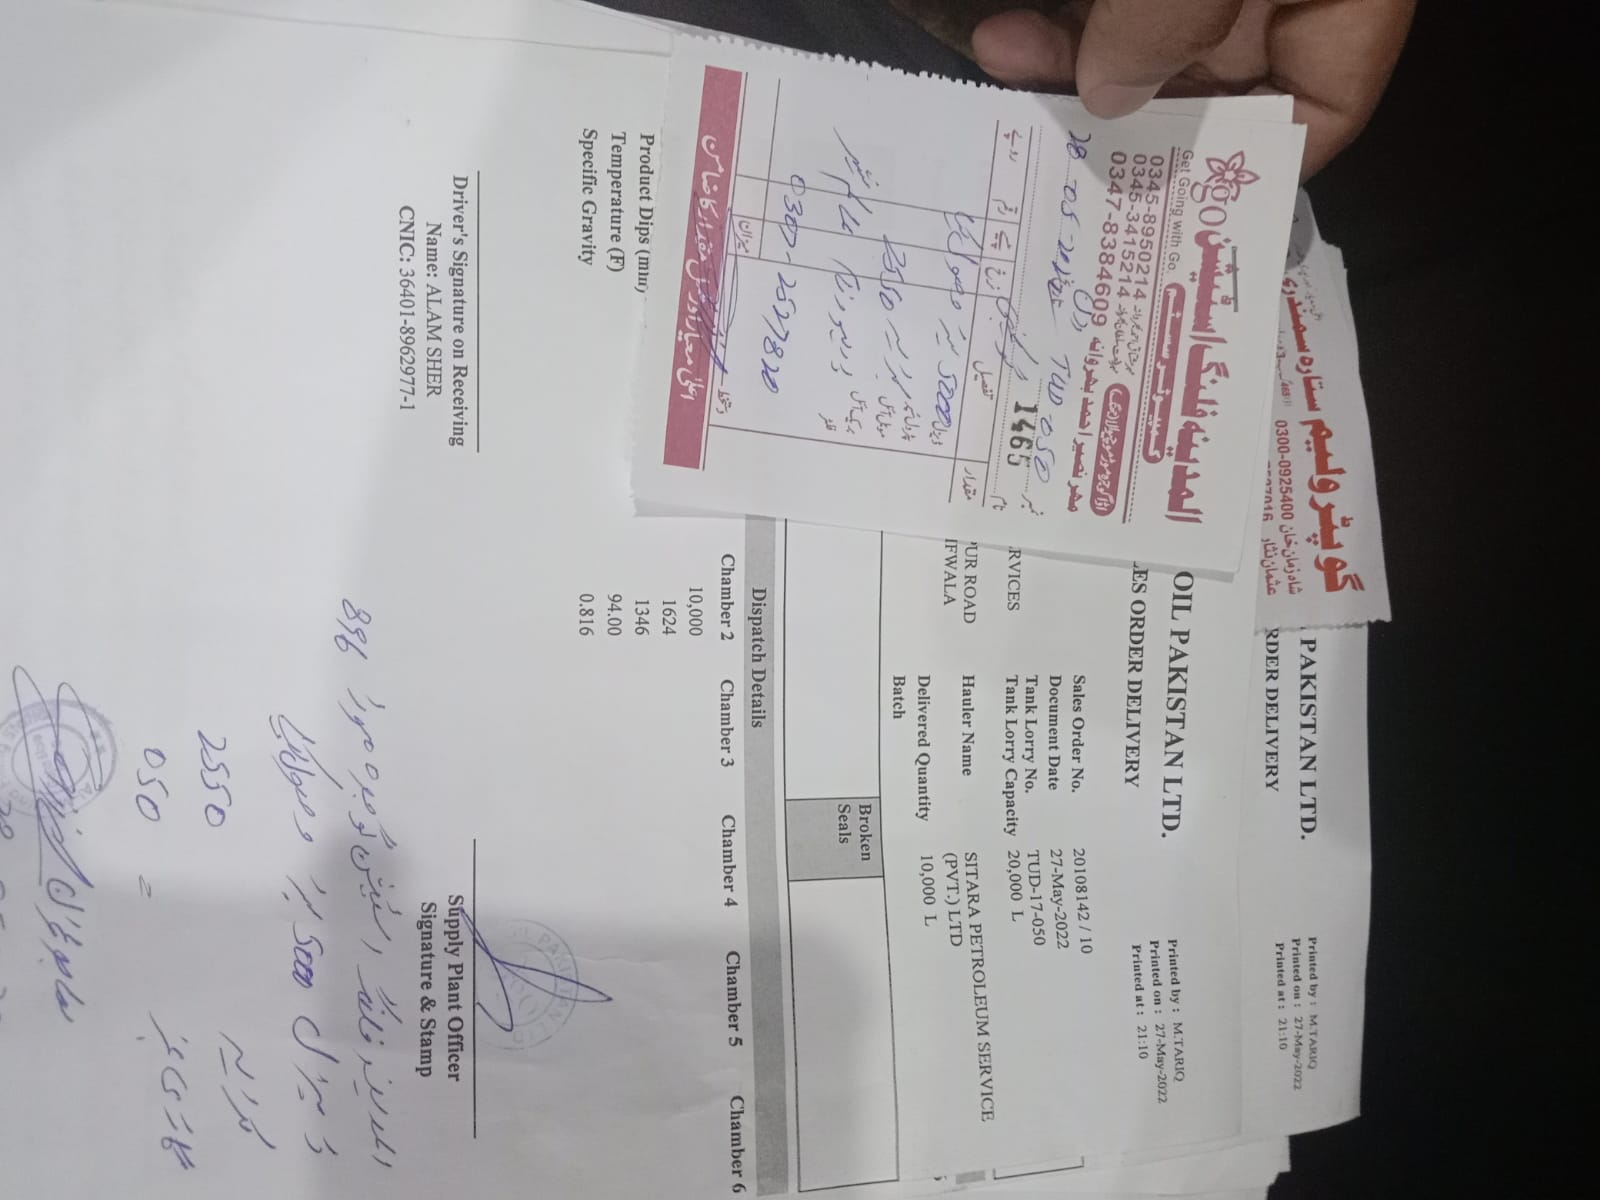 گو پٹرولیم ستارہ سمندری
شاہ زمان خان 0300-0925400
عثمان نثار
PAKISTAN LTD.
RDER DELIVERY
Printed by : M.TARIQ
Printed on : 27-May-2022
Printed at : 21:10
go المدینہ فلنگ اسٹیشن
Get Going with Go.
کمپیوٹر سسٹم
0345-8950214
0345-3415214
اڈا گوجرہ موڑ موچیوالا (جھنگ)
0347-8384609 مہر نصیر احمد بھروانہ
نمبر TUD-050 28-05-202
1465
نام
مقدار تفصیل نرخ پیسے رقم روپے
ڈیزل 5000 لیٹر وصول کیا
پٹرول سُپر
موبل آئل کرایہ 2550
بریک آئل
فلٹر
ڈرائیور نام عالم شیر
0307-2527820
میزان
دستخط
اعلیٰ معیار اور مکمل مقدار کا ضامن
OIL PAKISTAN LTD.
LES ORDER DELIVERY
Printed by : M.TARIQ
Printed on : 27-May-2022
Printed at : 21:10
Sales Order No. 20108142 / 10
Document Date 27-May-2022
Tank Lorry No. TUD-17-050
RVICES Tank Lorry Capacity 20,000 L
PUR ROAD Hauler Name SITARA PETROLEUM SERVICE
IFWALA (PVT.) LTD
Delivered Quantity 10,000 L
Batch
Broken
Seals
Dispatch Details
Chamber 2 Chamber 3 Chamber 4 Chamber 5 Chamber 6
10,000
1624
Product Dips (mm) 1346
Temperature (F) 94.00
Specific Gravity 0.816
OIL PAKISTAN LTD
Driver's Signature on Receiving
Name: ALAM SHER
CNIC: 36401-8962977-1
Supply Plant Officer
Signature & Stamp
المدینہ فلنگ اسٹیشن گوجرہ موڑ 896
ڈیزل 5000 لیٹر وصول کیا
کرایہ 2550
گاڑی نمبر = 050